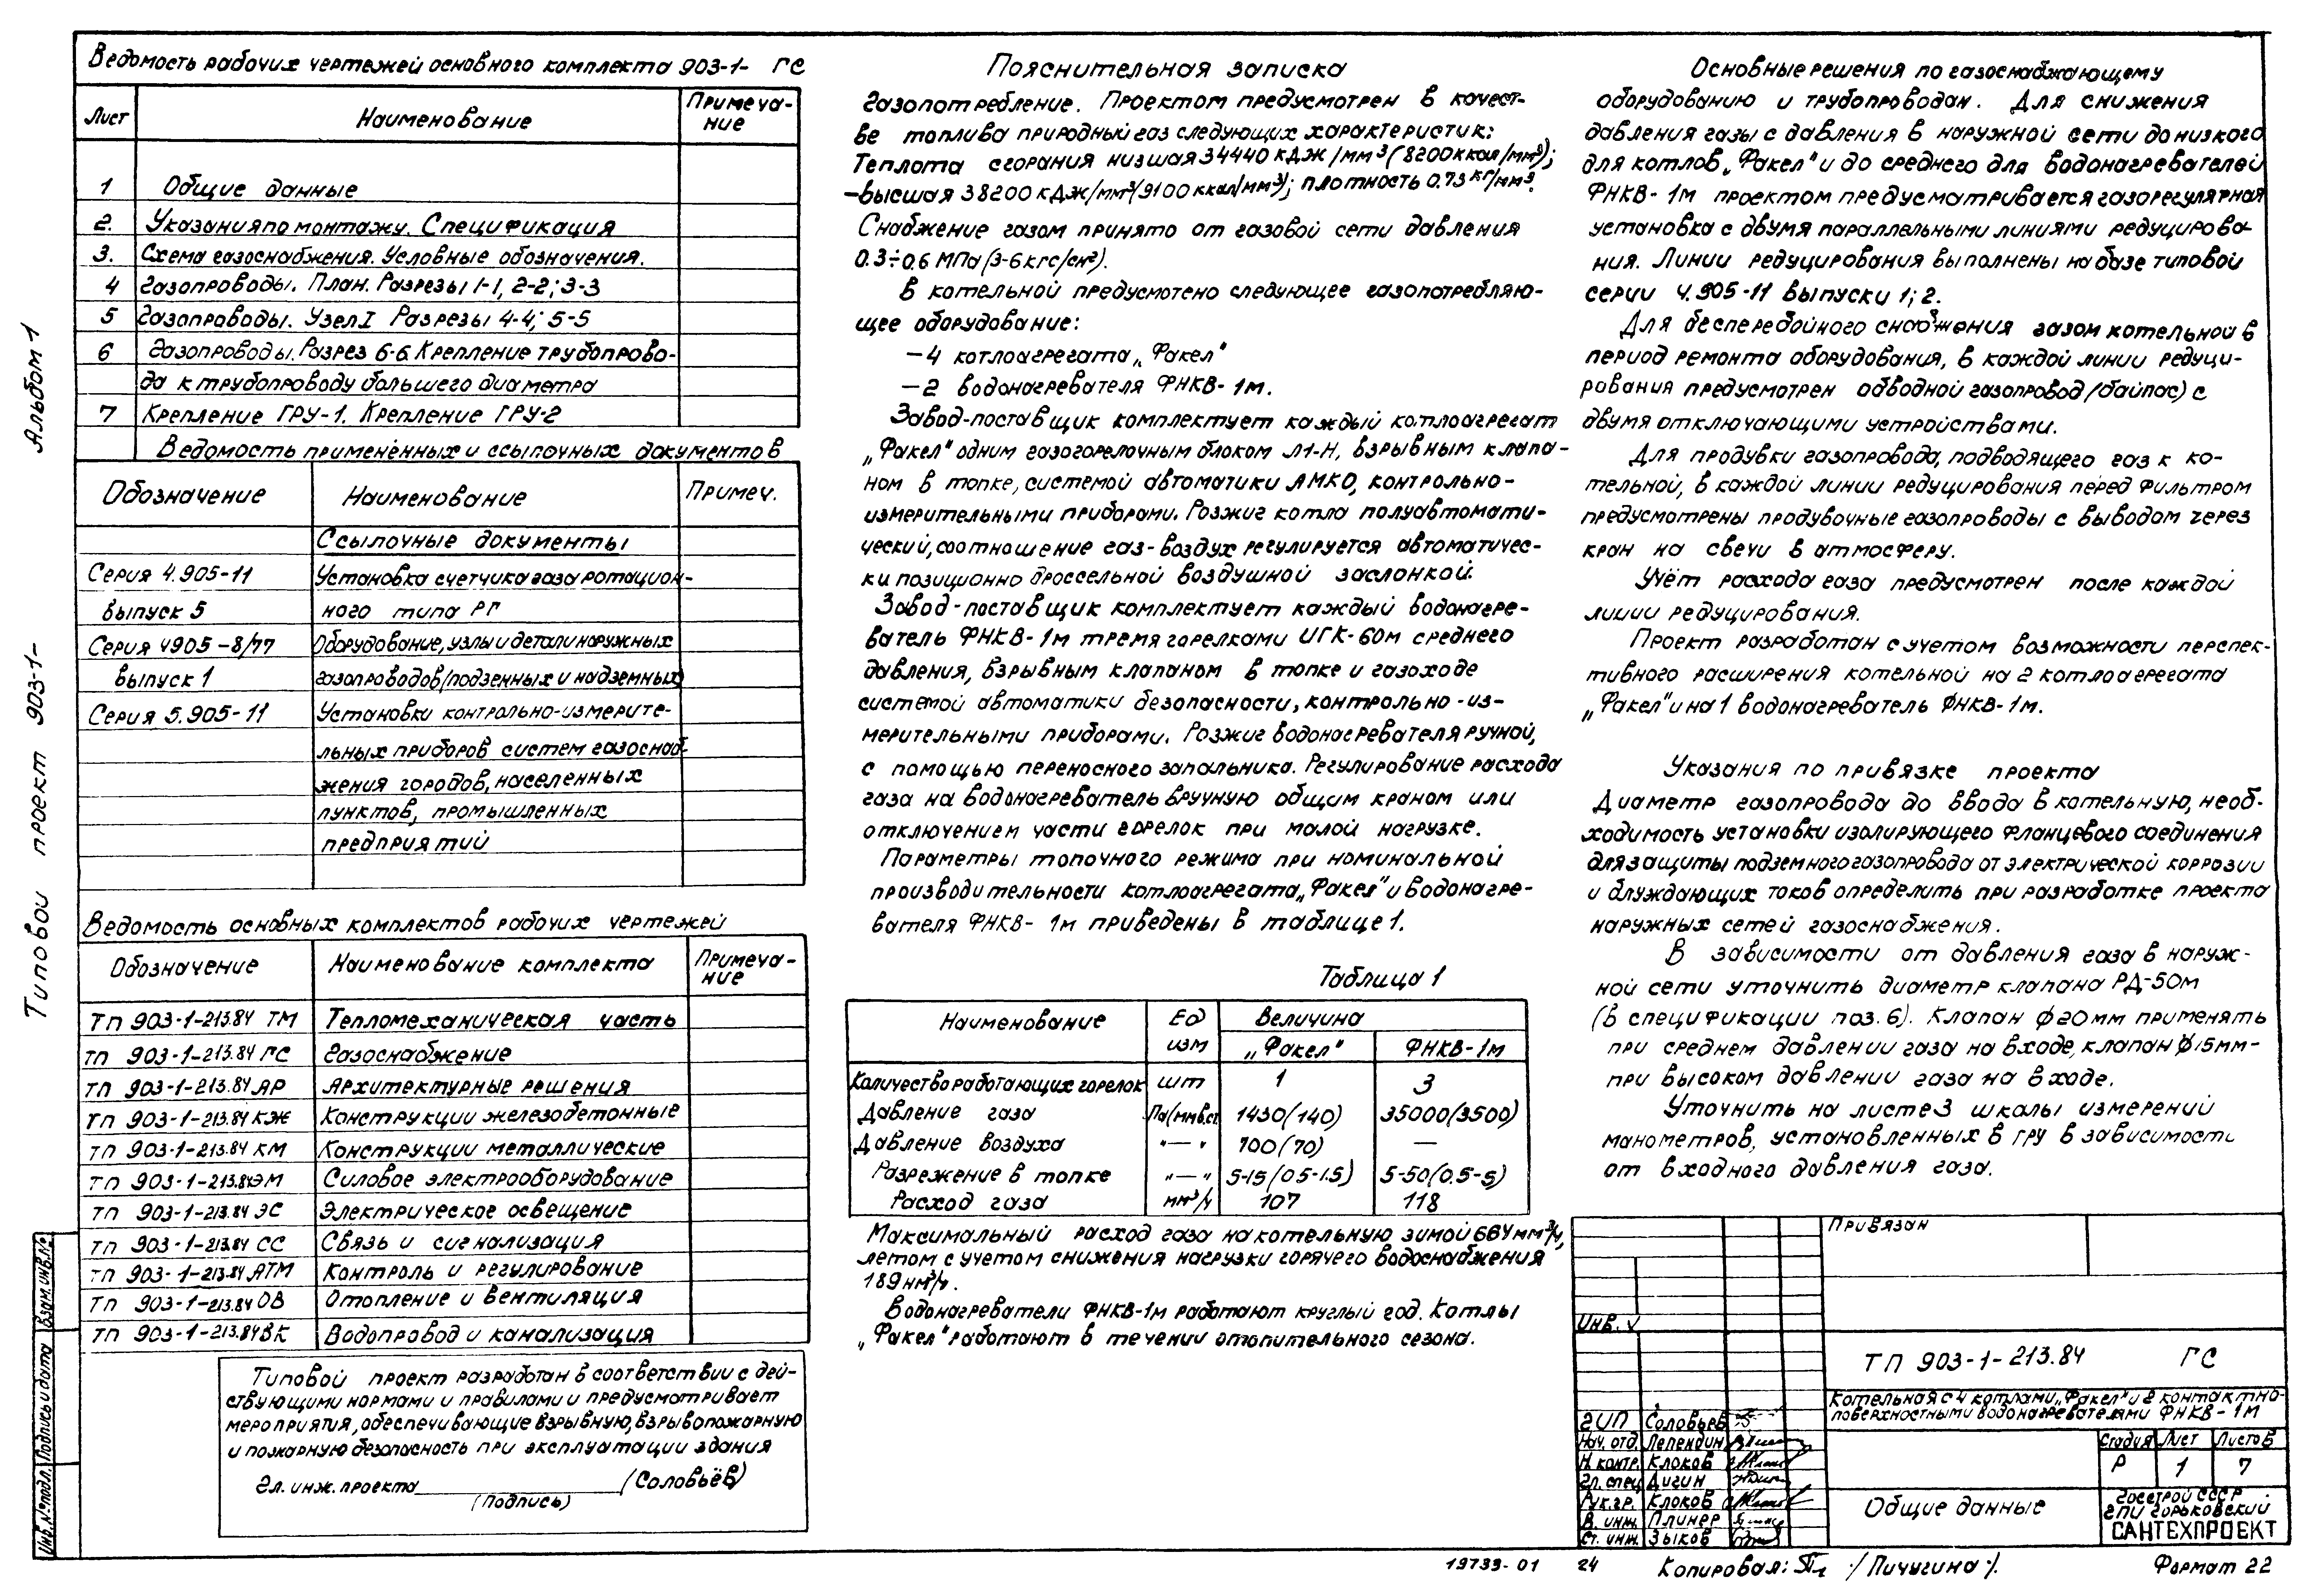 Альбом 1
Типовой проект 903-1-
Ведомость рабочих чертежей основного комплекта 903-1- ГС
Лист Наименование Примеча-
ние
1 Общие данные
2. Указания по монтажу. Спецификация
3. Схема газоснабжения. Условные обозначения.
4 Газопроводы. План. Разрезы 1-1, 2-2; 3-3
5 Газопроводы. Узел I Разрезы 4-4; 5-5
6 Газопроводы. Разрез 6-6. Крепление трубопрово-
да к трубопроводу большего диаметра
7 Крепление ГРУ-1. Крепление ГРУ-2
Ведомость применённых и ссылочных документов
Обозначение Наименование Примеч.
Ссылочные документы
Серия 4.905-11 Установка счетчика газа ротацион-
выпуск 5 ного типа РГ
Серия 4905-8/77 Оборудование, узлы и детали наружных
выпуск 1 газопроводов (подземных и надземных)
Серия 5.905-11 Установки контрольно-измерите-
льных приборов систем газоснаб-
жения городов, населенных
пунктов, промышленных
предприятий
Ведомость основных комплектов рабочих чертежей
Обозначение Наименование комплекта Примеча-
ние
ТП 903-1-213.84 ТМ Тепломеханическая часть
ТП 903-1-213.84 ГС Газоснабжение
ТП 903-1-213.84 АР Архитектурные решения
ТП 903-1-213.84 КЖ Конструкции железобетонные
ТП 903-1-213.84 КМ Конструкции металлические
ТП 903-1-213.84 ЭМ Силовое электрооборудование
ТП 903-1-213.84 ЭС Электрическое освещение
ТП 903-1-213.84 СС Связь и сигнализация
ТП 903-1-213.84 АТМ Контроль и регулирование
ТП 903-1-213.84 ОВ Отопление и вентиляция
ТП 903-1-213.84 ВК Водопровод и канализация
Типовой проект разработан в соответствии с дей-
ствующими нормами и правилами и предусматривает
мероприятия, обеспечивающие взрывную, взрывопожарную
и пожарную безопасность при эксплуатации здания
Гл. инж. проекта (Соловьёв)
(Подпись)
Инв. № подл. Подпись и дата Взам. инв. №
Пояснительная записка
Газопотребление. Проектом предусмотрен в качест-
ве топлива природный газ следующих характеристик:
Теплота сгорания низшая 34440 кДж/мм³ (8200 ккал/мм³);
-высшая 38200 кДж/мм³/9100 ккал/мм³); плотность 0.73 кг/мм³.
Снабжение газом принято от газовой сети давления
0.3÷0.6 МПа (3-6 кгс/см²).
В котельной предусмотено следующее газопотребляю-
щее оборудование:
-4 котлоагрегата „Факел"
-2 водонагревателя ФНКВ-1м.
Завод-поставщик комплектует каждый котлоагрегат
„Факел" одним газогорелочным блоком Л1-Н, взрывным клапа-
ном в топке, системой автоматики АМКО, контрольно-
измерительными приборами. Розжиг котла полуавтомати-
ческий, соотношение газ-воздух регулируется автоматичес-
ки позиционно дроссельной воздушной заслонкой.
Завод-поставщик комплектует каждый водонагре-
ватель ФНКВ-1м тремя горелками ИГК-60м среднего
давления, взрывным клапаном в топке и газоходе
системой автоматики безопасности, контрольно-из-
мерительными приборами. Розжиг водонагревателя ручной,
с помощью переносного запальника. Регулирование расхода
газа на водонагреватель вручную общим краном или
отключением части горелок при малой нагрузке.
Параметры топочного режима при номинальной
производительности котлоагрегата „Факел" и водонагре-
вателя ФНКВ-1м приведены в таблице 1.
Таблица 1
Наименование Ед Величина
изм „Факел" ФНКВ-1м
Количество работающих горелок шт 1 3
Давление газа Па(ммв.ст. 1430(140) 35000(3500)
Давление воздуха "—" 700(70) —
Разрежение в топке "—" 5-15(0.5-1.5) 5-50(0.5-5)
Расход газа мм³/ч 107 118
Максимальный расход газа на котельную зимой 664 мм³/ч,
летом с учетом снижения нагрузки горячего водоснабжения
189 нм³/ч.
Водонагреватели ФНКВ-1м работают круглый год. Котлы
„Факел" работают в течении отопительного сезона.
Основные решения по газоснабжающему
оборудованию и трубопроводам. Для снижения
давления газы с давления в наружной сети до низкого
для котлов „Факел" и до среднего для водонагревателей
ФНКВ-1м проектом предусматривается газорегулярная
установка с двумя параллельными линиями редуцирова-
ния. Линии редуцирования выполнены на базе типовой
серии 4.905-11 выпуски 1; 2.
Для бесперебойного снабжения газом котельной в
период ремонта оборудования, в каждой линии редуци-
рования предусмотрен обводной газопровод (байпас) с
двумя отключающими устройствами.
Для продувки газопровода, подводящего газ к ко-
тельной, в каждой линии редуцирования перед фильтром
предусмотрены продувочные газопроводы с выводом через
кран на свечи в атмосферу.
Учёт расхода газа предусмотрен после каждой
линии редуцирования.
Проект разработан с учетом возможности перспек-
тивного расширения котельной на 2 котлоагрегата
„Факел" и на 1 водонагреватель ФНКВ-1м.
Указания по привязке проекта
Диаметр газопровода до ввода в котельную, необ-
ходимость установки изолирующего фланцевого соединения
для защиты подземного газопровода от электрической коррозии
и блуждающих токов определить при разработке проекта
наружных сетей газоснабжения.
В зависимости от давления газа в наруж-
ной сети уточнить диаметр клапана РД-50м
(в спецификации поз. 6). Клапан ф20мм применять
при среднем давлении газа на входе, клапан ф15мм-
при высоком давлении газа на входе.
Уточнить на листе 3 шкалы измерений
манометров, установленных в ГРУ в зависимости
от входного давления газа.
Привязан
Инв. √
ТП 903-1-213.84 ГС
Котельная с 4 котлами „Факел" и 2 контактно-
поверхностными водонагревателями ФНКВ-1М
ГИП Соловьёв
Нач. отд. Лепендин
Н. контр. Клоков
Гл. спец. Дигин
Рук. гр. Клоков
В. инж. Плинер
Ст. инж. Зыков
Стадия Лист Листов
Р 1 7
Общие данные
Госстрой СССР
ГПИ Горьковский
САНТЕХПРОЕКТ
19733-01 24 Копировал: /Пичугина/. Формат 22